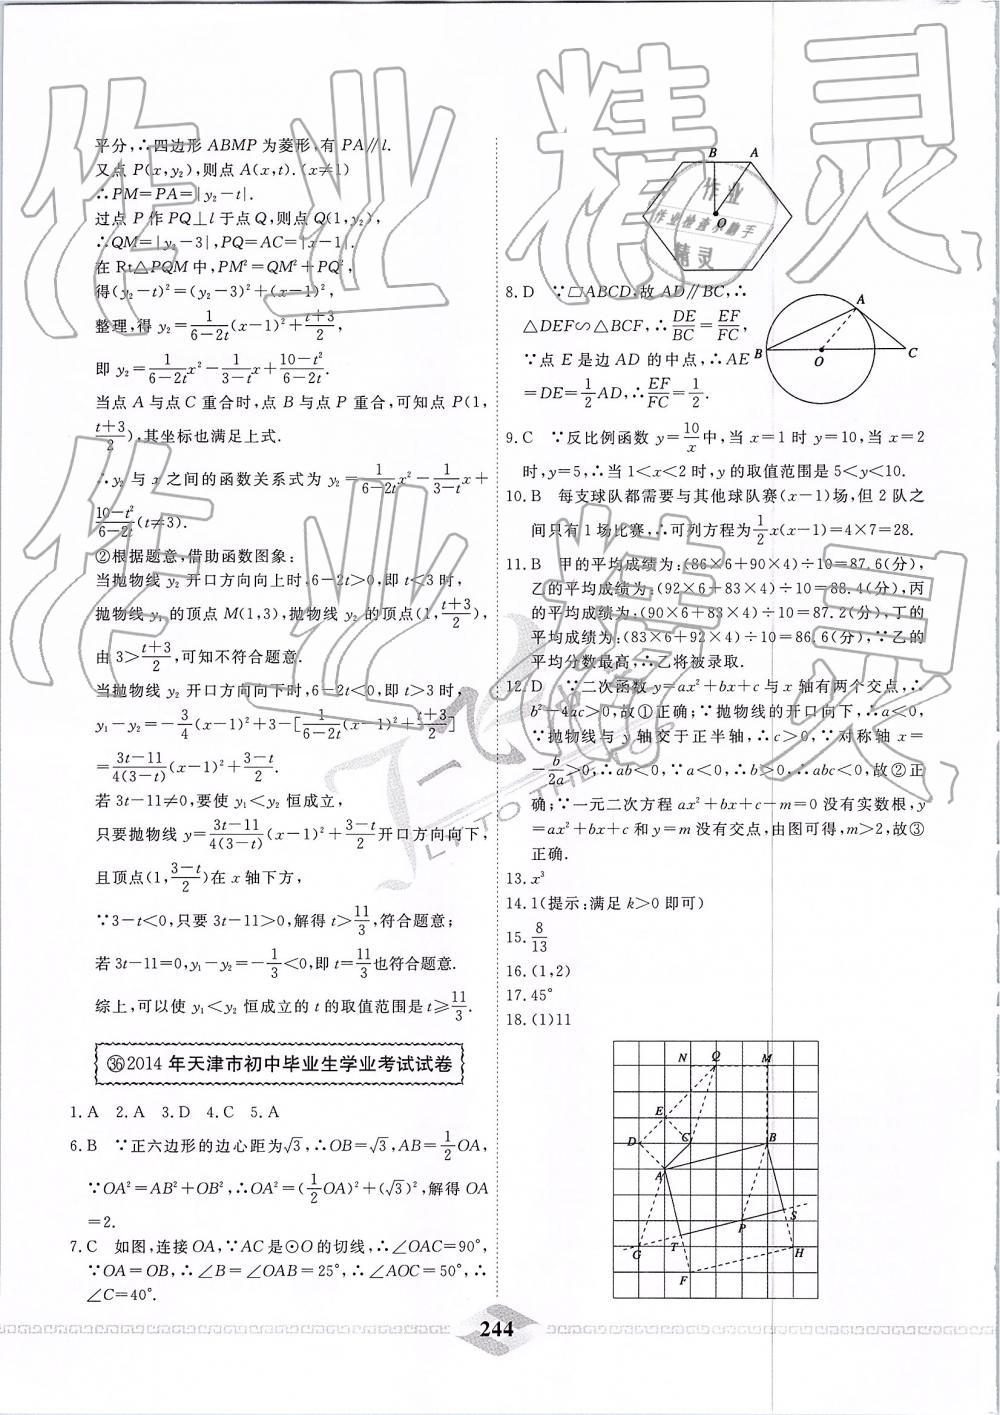 平分,∴四边形 ABMP 为菱形,有 PA∥l.
又点 P(x,y₂),则点 A(x,t).(x≠1)
∴PM=PA=|y₂-t|.
过点 P 作 PQ⊥l 于点 Q,则点 Q(1,y₂),
∴QM=|y₂-3|,PQ=AC=|x-1|.
在 Rt△PQM 中,PM²=QM²+PQ²,
得(y₂-t)²=(y₂-3)²+(x-1)²,
整理,得 y₂=1/(6-2t)(x-1)²+(t+3)/2,
即 y₂=1/(6-2t)x²-1/(3-t)x+(10-t²)/(6-2t).
当点 A 与点 C 重合时,点 B 与点 P 重合,可知点 P(1,
(t+3)/2),其坐标也满足上式.
∴y₂ 与 x 之间的函数关系式为 y₂=1/(6-2t)x²-1/(3-t)x+
(10-t²)/(6-2t)(t≠3).
②根据题意,借助函数图象:
当抛物线 y₂ 开口方向向上时,6-2t>0,即 t<3 时,
抛物线 y₁ 的顶点 M(1,3),抛物线 y₂ 的顶点(1,(t+3)/2),
由 3>(t+3)/2,可知不符合题意.
当抛物线 y₂ 开口方向向下时,6-2t<0,即 t>3 时,
y₁-y₂=-3/4(x-1)²+3-[1/(6-2t)(x-1)²+(t+3)/2]
=(3t-11)/(4(3-t))(x-1)²+(3-t)/2.
若 3t-11≠0,要使 y₁<y₂ 恒成立,
只要抛物线 y=(3t-11)/(4(3-t))(x-1)²+(3-t)/2开口方向向下,
且顶点(1,(3-t)/2)在 x 轴下方,
∵3-t<0,只要 3t-11>0,解得 t>11/3,符合题意;
若 3t-11=0,y₁-y₂=-1/3<0,即 t=11/3也符合题意.
综上,可以使 y₁<y₂ 恒成立的 t 的取值范围是 t≥11/3.
㊱2014 年天津市初中毕业生学业考试试卷
1.A 2.A 3.D 4.C 5.A
6.B ∵正六边形的边心距为√3,∴OB=√3,AB=1/2OA,
∵OA²=AB²+OB²,∴OA²=(1/2OA)²+(√3)²,解得 OA
=2.
7.C 如图,连接 OA,∵AC 是⊙O 的切线,∴∠OAC=90°,
∵OA=OB,∴∠B=∠OAB=25°,∴∠AOC=50°,∴
∠C=40°.
B A
O
8.D ∵□ABCD,故 AD∥BC,∴
△DEF∽△BCF,∴DE/BC=EF/FC,
∵点 E 是边 AD 的中点,∴AE
=DE=1/2AD,∴EF/FC=1/2.
A
B O C
9.C ∵反比例函数 y=10/x中,当 x=1 时 y=10,当 x=2
时,y=5,∴当 1<x<2 时,y 的取值范围是 5<y<10.
10.B 每支球队都需要与其他球队赛(x-1)场,但 2 队之
间只有 1 场比赛,∴可列方程为1/2x(x-1)=4×7=28.
11.B 甲的平均成绩为:(86×6+90×4)÷10=87.6(分),
乙的平均成绩为:(92×6+83×4)÷10=88.4(分),丙
的平均成绩为:(90×6+83×4)÷10=87.2(分),丁的
平均成绩为:(83×6+92×4)÷10=86.6(分),∵乙的
平均分数最高,∴乙将被录取.
12.D ∵二次函数 y=ax²+bx+c 与 x 轴有两个交点,∴
b²-4ac>0,故①正确;∵抛物线的开口向下,∴a<0,
∵抛物线与 y 轴交于正半轴,∴c>0,∵对称轴 x=
-b/2a>0,∴ab<0,∵a<0,∴b>0,∴abc<0,故②正
确;∵一元二次方程 ax²+bx+c-m=0 没有实数根,y
=ax²+bx+c 和 y=m 没有交点,由图可得,m>2,故③
正确.
13.x³
14.1(提示:满足 k>0 即可)
15.8/13
16.(1,2)
17.45°
18.(1)11
N Q M
E
D C B
A
S
P
G T H
F
244
作业精灵
作业精灵
作业
作业检查小助手
精灵